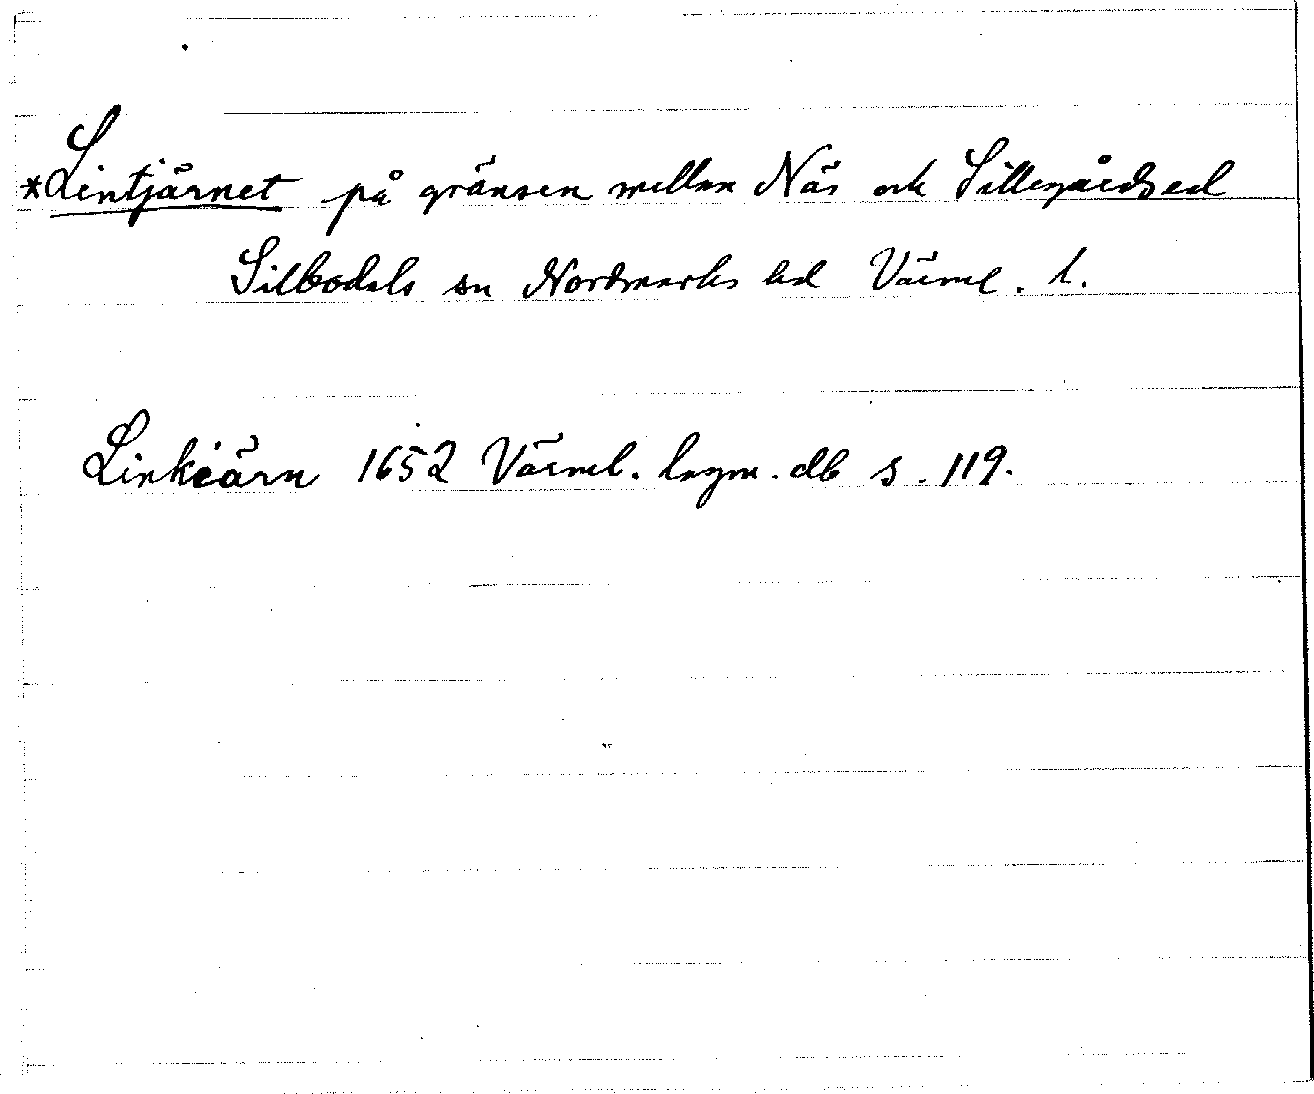 *Lintjärnet på gränsen mellan Näs och Sillegårdsed
Silbodals sn Nordmarks hd Värml. l.
Linkiärn 1652 Värml. lagm. db s. 119.